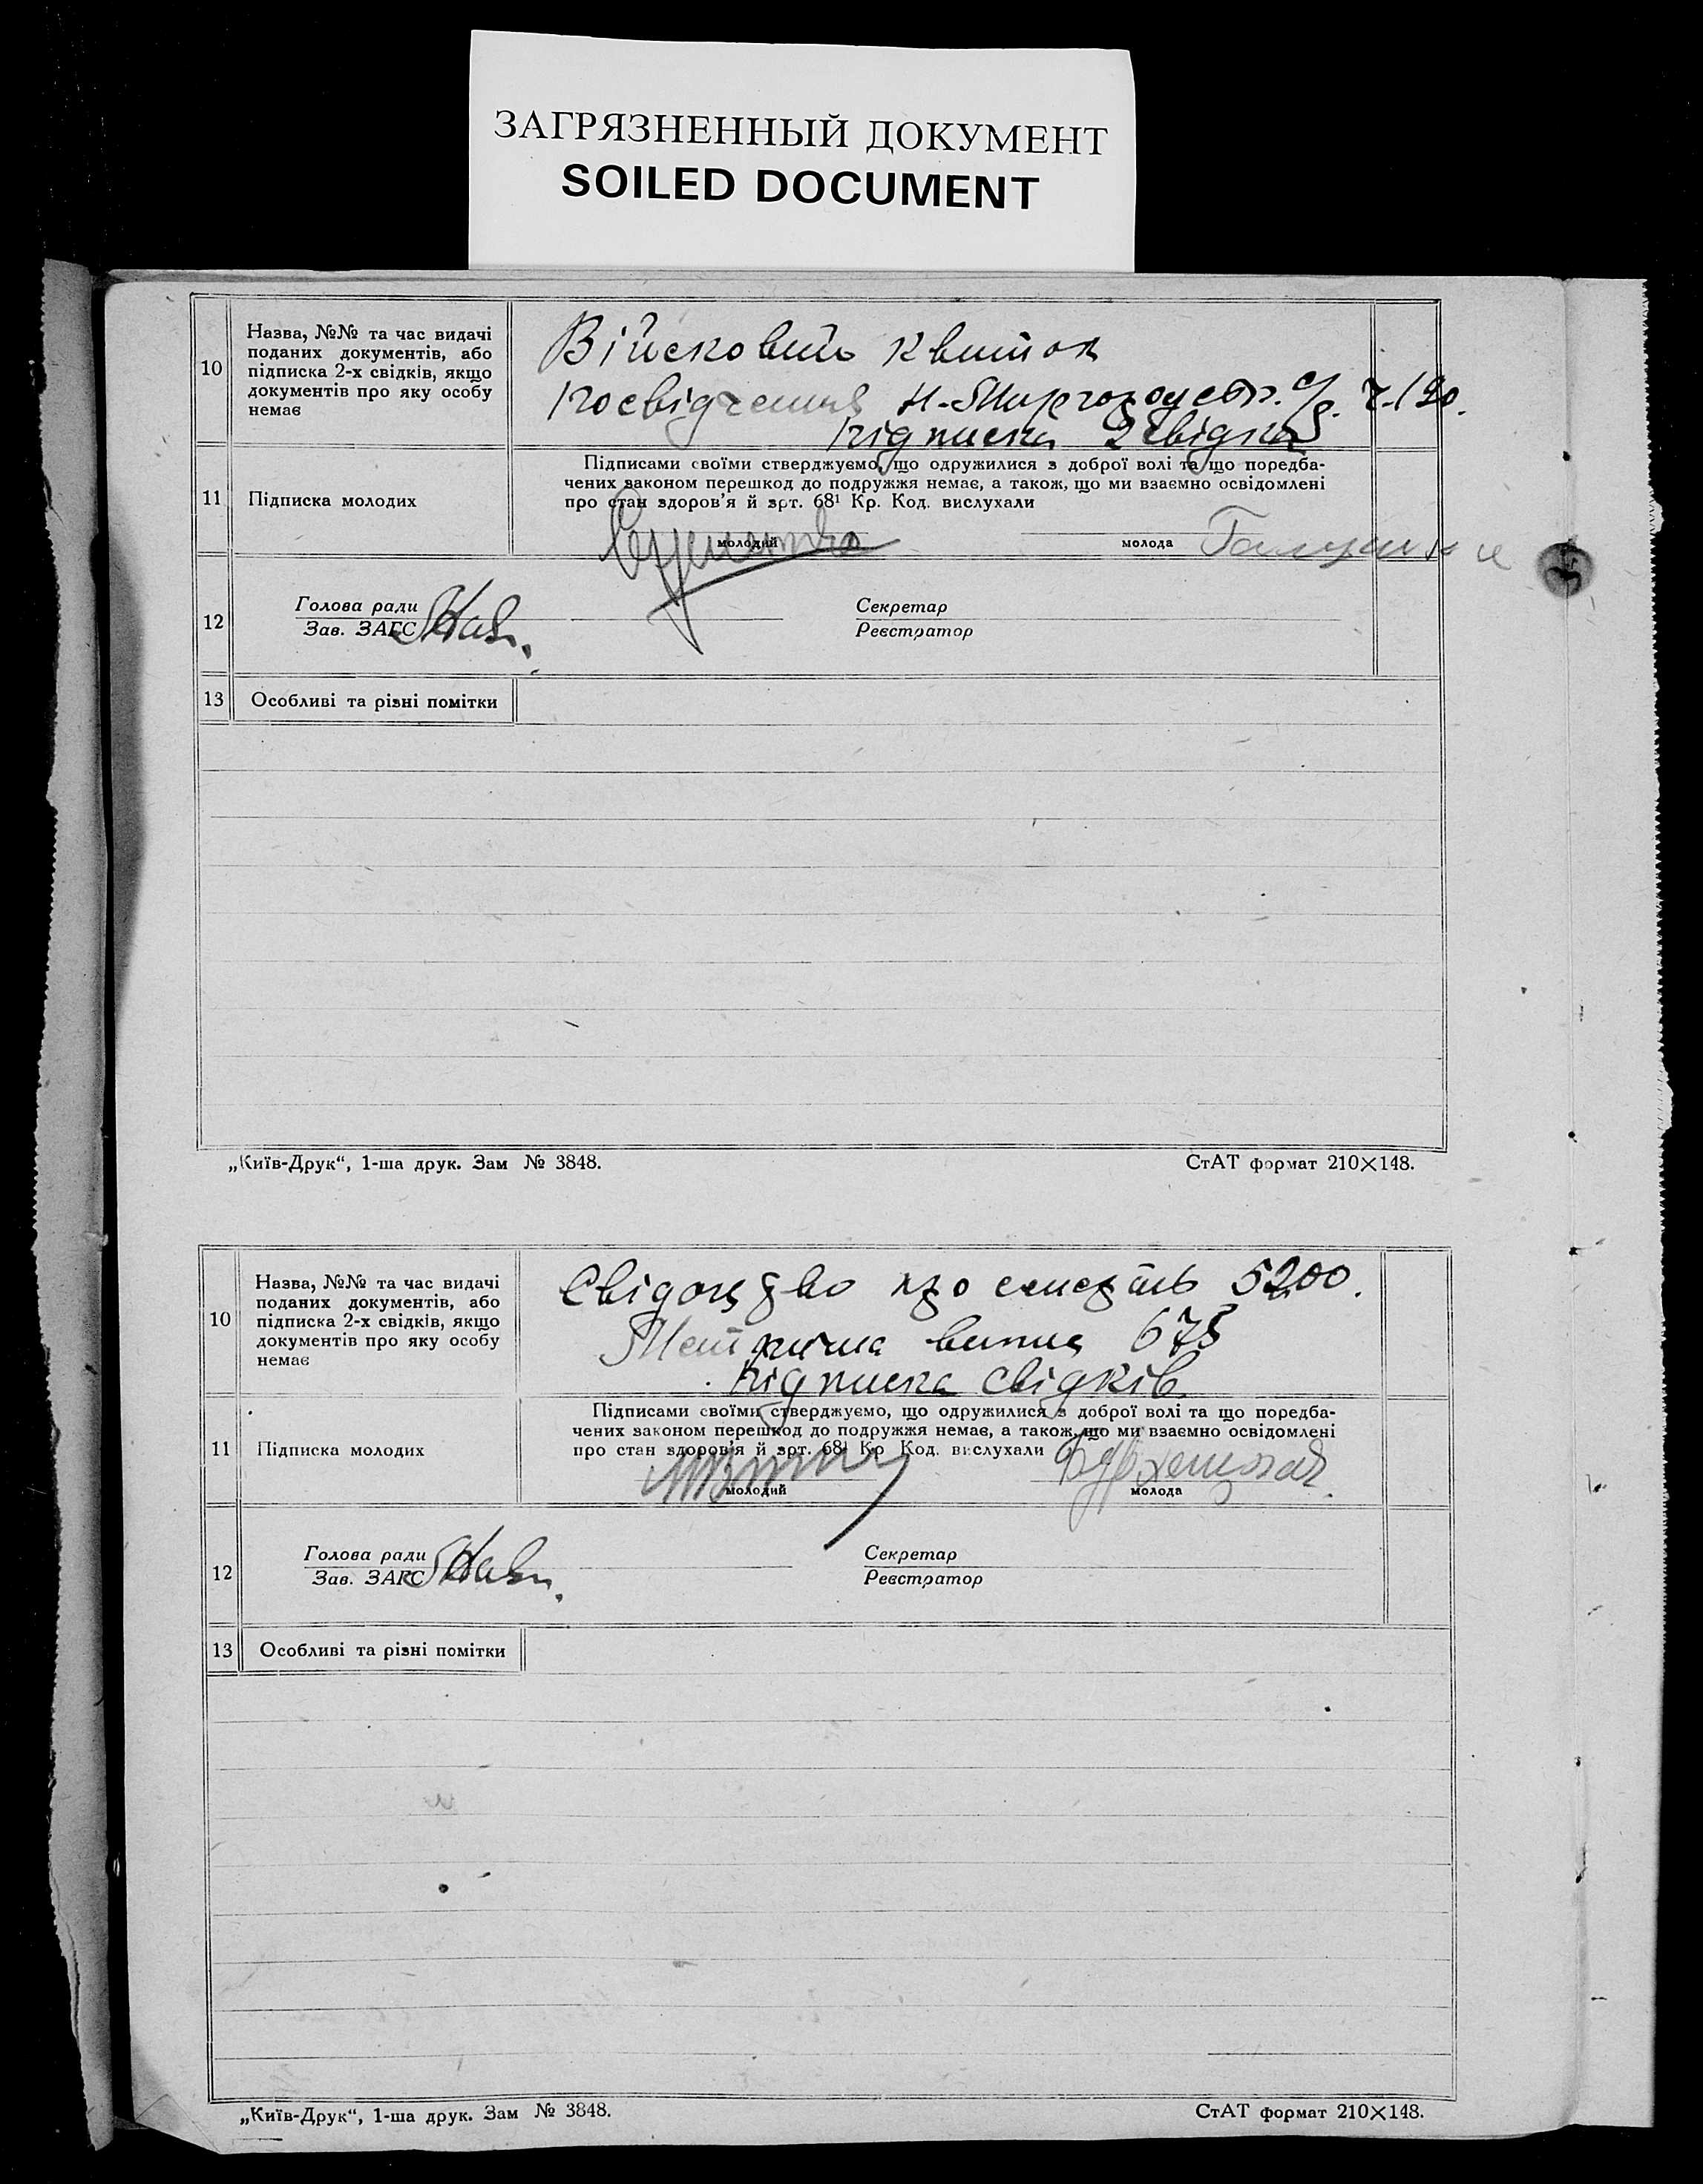 ЗАГРЯЗНЕННЫЙ ДОКУМЕНТ
SOILED DOCUMENT
10
Назва, №№ та час видачі
поданих документів, або
підписка 2-х свідків, якщо
документів про яку особу
немає
Військовий квиток
Посвідчення Н-Миргородськ. с/р. 7.190.
підписка 2 свідків
11
Підписка молодих
Підписами своїми стверджуємо, що одружилися з доброї волі та що поредба-
чених законом перешкод до подружжя немає, а також, що ми взаємно освідомлені
про стан здоров'я й арт. 68¹ Кр. Код. вислухали
молодий
молода
12
Голова ради
Зав. ЗАГС
Секретар
Реєстратор
13
Особливі та різні помітки
„Київ-Друк“, 1-ша друк. Зам № 3848.
СтАТ формат 210×148.
10
Назва, №№ та час видачі
поданих документів, або
підписка 2-х свідків, якщо
документів про яку особу
немає
Свідоцтво про смерть 5200.
Метрична випись 675
підписка свідків
11
Підписка молодих
Підписами своїми стверджуємо, що одружилися з доброї волі та що поредба-
чених законом перешкод до подружжя немає, а також, що ми взаємно освідомлені
про стан здоров'я й арт. 68¹ Кр. Код. вислухали
молодий
молода
12
Голова ради
Зав. ЗАГС
Секретар
Реєстратор
13
Особливі та різні помітки
„Київ-Друк“, 1-ша друк. Зам № 3848.
СтАТ формат 210×148.